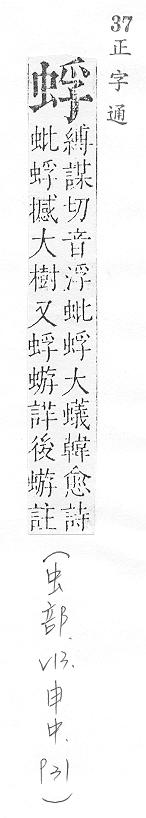 37
正字通
蜉
縛謀切音浮蚍蜉大蟻韓愈詩
蚍蜉撼大樹又蜉蝣詳後蝣註
(虫部.V13.申中.P31)